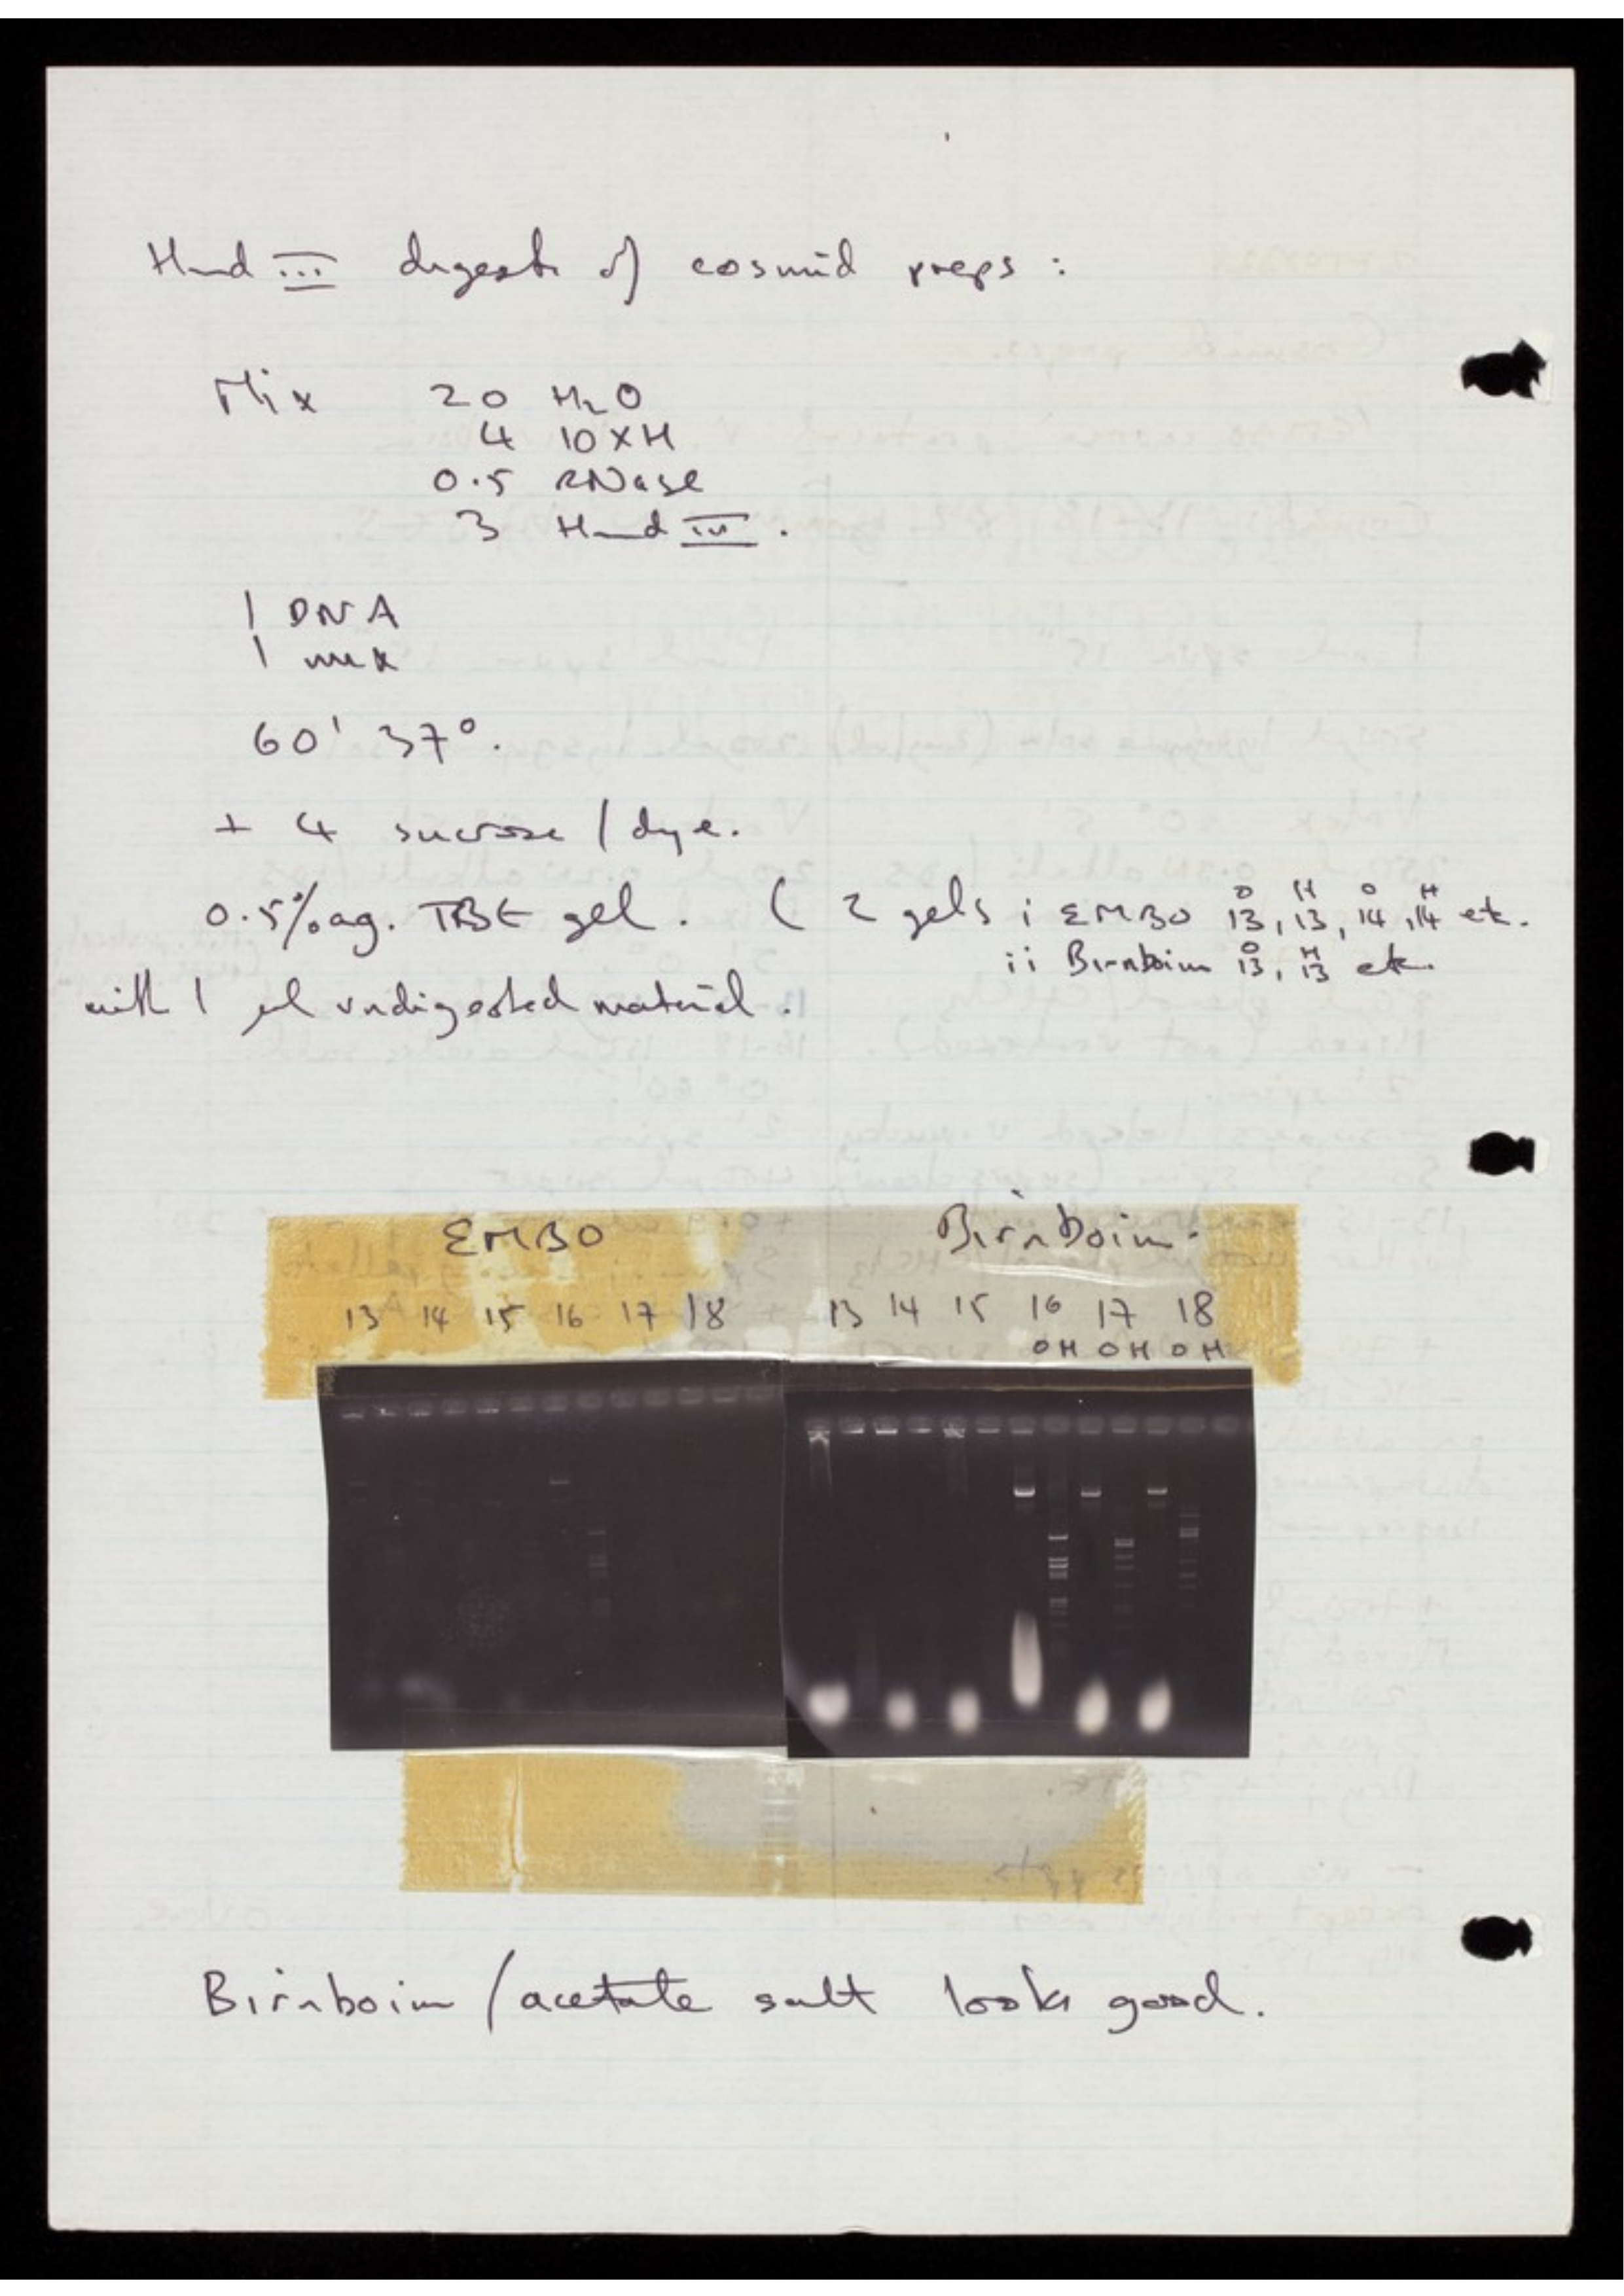 Hind III digests of cosmid preps :
Mix 20 H2O
4 10XH
0.5 RNase
3 Hind III .
1 DNA
1 mix
60' 37°.
+ 4 sucrose / dye.
0.5% ag. TBE gel. ( 2 gels i EMBO 13, 13, 14, 14 etc.
O H O H
ii Birnboim 13, 13 etc.
O H
with 1 µl undigested material.
EMBO Birnboim.
13 14 15 16 17 18 13 14 15 16 17 18
O H O H O H
Birnboim / acetate salt looks good.